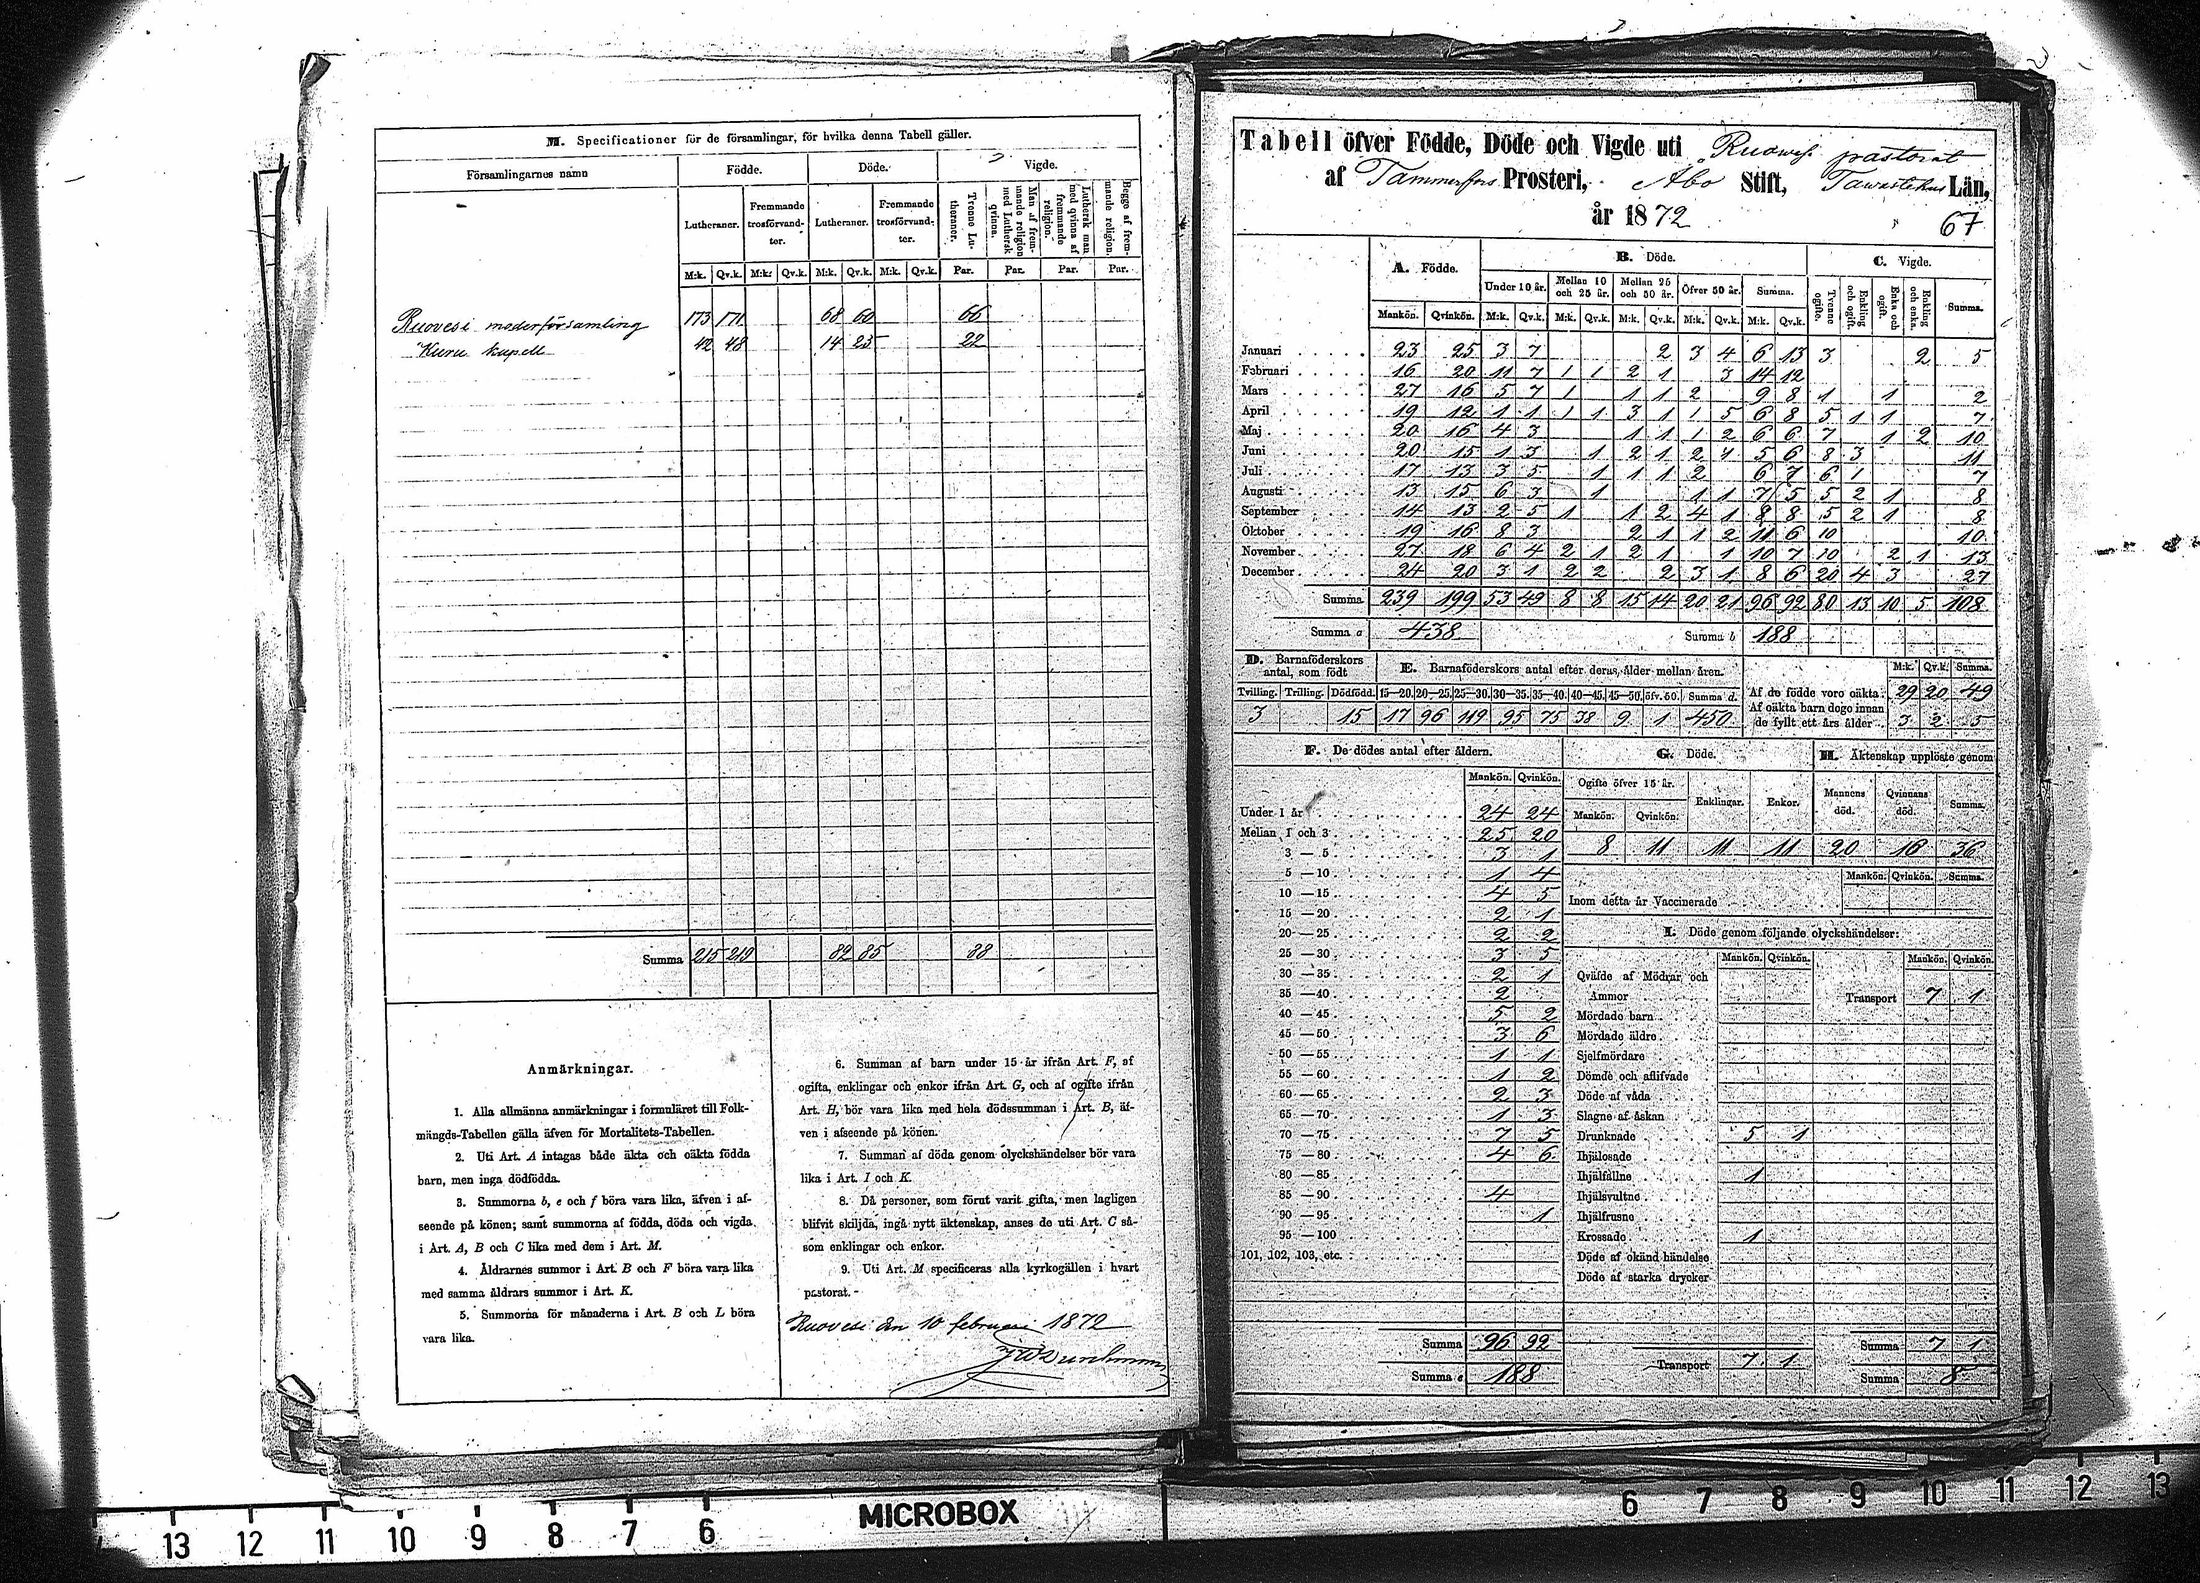 M. Specificationer för de församlingar, för hvilka denna Tabell gäller.
Församlingarnes namn
Födde. Döde. Vigde.
Lutheraner. Fremmande trosförvandter. Lutheraner. Fremmande trosförvandter. Tvenne Lutheraner. Man af fremmande religion med Luthersk qvinna. Luthersk man med qvinna af fremmande religion. Begge af fremmande religion.
M:k. Qv.k. M:k. Qv.k. M:k. Qv.k. M:k. Qv.k. Par. Par. Par. Par.
Ruovesi moderförsamling 173 171 68 60 66
Kuru kapell 42 48 14 25 22
Summa 215 219 82 85 88
Anmärkningar.
1. Alla allmänna anmärkningar i formuläret till Folk-
mängds-Tabellen gälla äfven för Mortalitets-Tabellen.
2. Uti Art. A intagas både äkta och oäkta födda
barn, men inga dödfödda.
3. Summorna b, e och f böra vara lika, äfven i af-
seende på könen; samt summorna af födda, döda och vigda
i Art. A, B och C lika med dem i Art. M.
4. Åldrarnes summor i Art. B och F böra vara lika
med samma åldrars summor i Art. K.
5. Summorna för månaderna i Art. B och L böra
vara lika.
6. Summan af barn under 15 år ifrån Art. F, af
ogifta, enklingar och enkor ifrån Art. G, och af ogifte ifrån
Art. H, bör vara lika med hela dödssumman i Art. B, äf-
ven i afseende på könen.
7. Summan af döda genom olyckshändelser bör vara
lika i Art. I och K.
8. Då personer, som förut varit gifta, men lagligen
blifvit skiljda, ingå nytt äktenskap, anses de uti Art. C så-
som enklingar och enkor.
9. Uti Art. M specificeras alla kyrkogällen i hvart
pastorat.
Ruovesi den 10 februari 1872
Tabell öfver Födde, Döde och Vigde uti Ruovesi pastorat
af Tammerfors Prosteri, Åbo Stift, Tawastehus Län,
år 1872
67
A. Födde. B. Döde. C. Vigde.
Under 10 år. Mellan 10 och 25 år. Mellan 25 och 50 år. Öfver 50 år. Summa. Tvenne ogifte. Enkling och ogift. Enka och ogift. Enkling och enka. Summa.
Mankön. Qvinkön. M:k. Qv.k. M:k. Qv.k. M:k. Qv.k. M:k. Qv.k. M:k. Qv.k.
Januari 23 25 3 7 2 3 4 6 13 3 2 5
Februari 16 20 11 7 1 1 2 1 3 14 12
Mars 27 16 5 7 1 1 1 2 9 8 1 1 2
April 19 12 1 1 1 1 3 1 1 5 6 8 5 1 1 7
Maj 20 16 4 3 1 1 1 2 6 6 7 1 2 10
Juni 20 15 1 3 1 2 1 2 1 5 6 8 3 11
Juli 17 13 3 5 1 1 1 2 6 7 6 1 7
Augusti 13 15 6 3 1 1 1 7 5 5 2 1 8
September 14 13 2 5 1 1 2 4 1 8 8 5 2 1 8
Oktober 19 16 8 3 2 1 1 2 11 6 10 10
November 27 18 6 4 2 1 2 1 1 10 7 10 2 1 13
December 24 20 3 1 2 2 2 3 1 8 6 20 4 3 27
Summa 239 199 53 49 8 8 15 14 20 21 96 92 80 13 10 5 108
Summa a 438 Summa b 188
D. Barnaföderskors antal, som födt
Tvilling. Trilling. Dödfödd.
3 15
E. Barnaföderskors antal efter deras ålder mellan åren.
15—20. 20—25. 25—30. 30—35. 35—40. 40—45. 45—50. öfv. 50. Summa d.
17 96 119 95 75 38 9 1 450
M:k. Qv.k. Summa.
Af de födde voro oäkta 29 20 49
Af oäkta barn dogo innan
de fyllt ett års ålder 3 2 5
F. De dödes antal efter åldern.
Mankön. Qvinkön.
Under 1 år 24 24
Mellan 1 och 3 25 20
3 — 5 3 1
5 — 10 1 4
10 — 15 4 5
15 — 20 2 1
20 — 25 2 2
25 — 30 3 5
30 — 35 2 1
35 — 40 2
40 — 45 5 2
45 — 50 3 6
50 — 55 1 1
55 — 60 1 2
60 — 65 2 3
65 — 70 1 3
70 — 75 7 5
75 — 80 4 6
80 — 85
85 — 90 4
90 — 95 1
95 — 100
101, 102, 103, etc.
Summa 96 92
Summa e 188
G. Döde.
Ogifte öfver 15 år. Enklingar. Enkor.
Mankön. Qvinkön.
8 11 11 11
H. Äktenskap upplöste genom
Mannens död. Qvinnans död. Summa.
20 16 36
Mankön. Qvinkön. Summa.
Inom detta år Vaccinerade
I. Döde genom följande olyckshändelser:
Mankön. Qvinkön. Mankön. Qvinkön.
Qväfde af Mödrar och
Ammor
Transport 7 1
Mördade barn
Mördade äldre
Sjelfmördare
Dömde och aflifvade
Döde af våda
Slagne af åskan
Drunknade 5 1
Ihjälosade
Ihjälfallne 1
Ihjälsvultne
Ihjälfrusne
Krossade 1
Döde af okänd händelse
Döde af starka drycker
Transport 7 1
Summa 7 1
Summa 8
MICROBOX
13 12 11 10 9 8 7 6
6 7 8 9 10 11 12 13